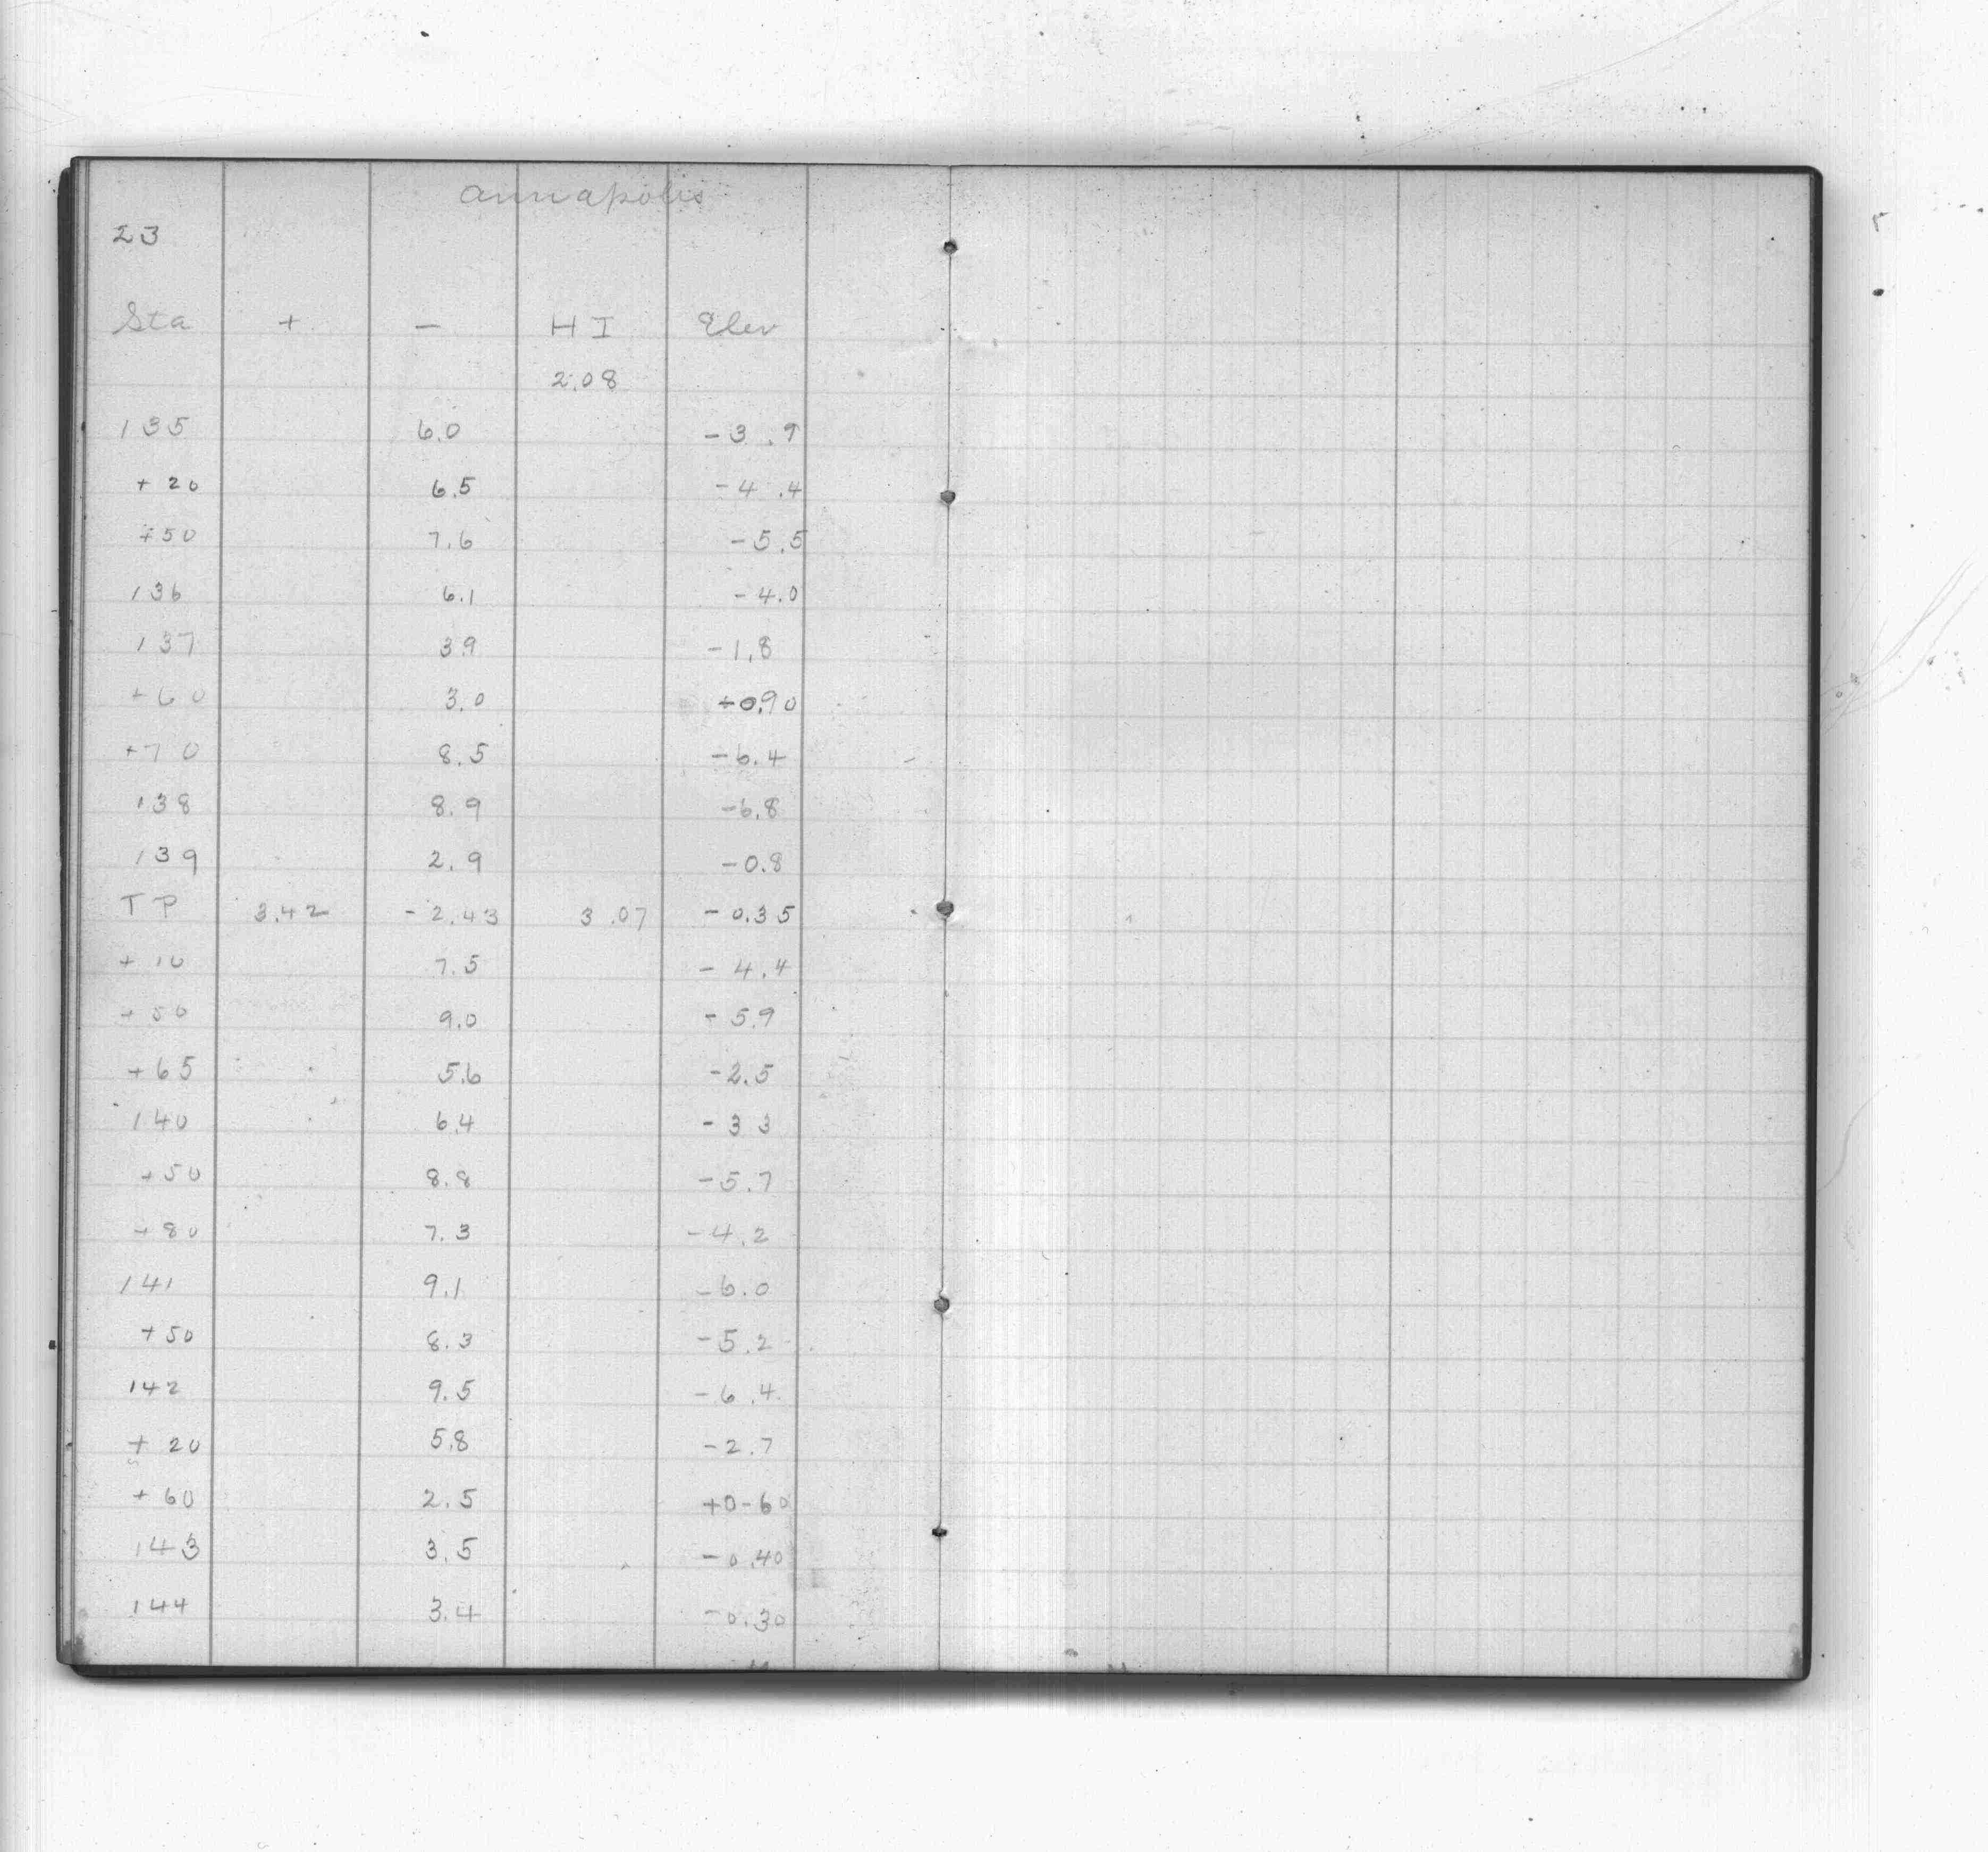 Annapolis
23
Sta + - H I Elev
2.08
135 6.0 -3.9
+20 6.5 -4.4
+50 7.6 -5.5
136 6.1 -4.0
137 3.9 -1.8
+60 3.0 +0.90
+70 8.5 -6.4
138 8.9 -6.8
139 2.9 -0.8
TP 3.42 -2.43 3.07 -0.35
+10 7.5 -4.4
+50 9.0 -5.9
+65 5.6 -2.5
140 6.4 -3 3
+50 8.8 -5.7
+80 7.3 -4.2
141 9.1 -6.0
+50 8.3 -5.2
142 9.5 -6.4
+20 5.8 -2.7
+60 2.5 +0-60
143 3.5 -0.40
144 3.4 -0.30